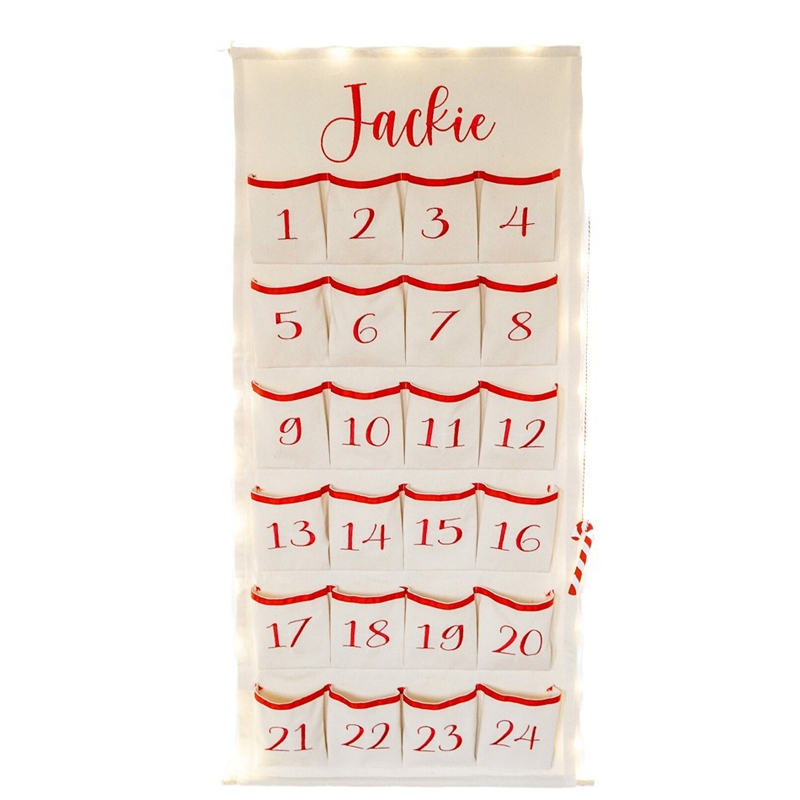 Jackie
1 2 3 4
5 6 7 8
9 10 11 12
13 14 15 16
17 18 19 20
21 22 23 24